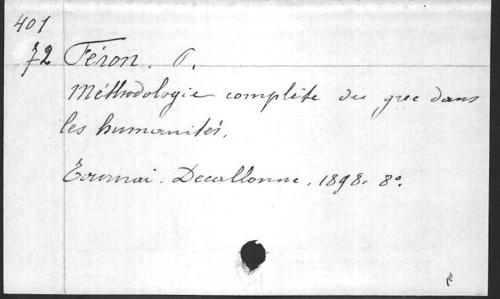 401
72 Féron. P.
Méthodologie complète du grec dans
les humanités.
Tournai. Decallonne. 1898. 8°.